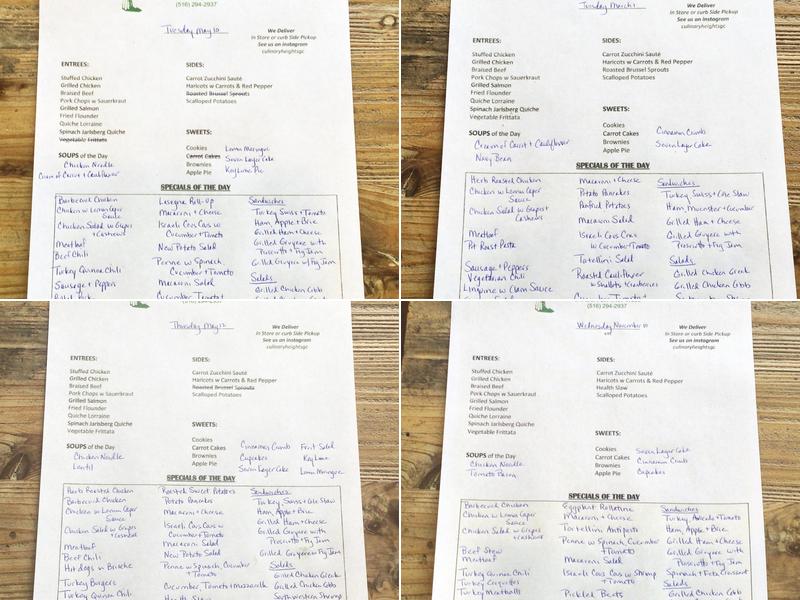 (516) 294-2937
Tuesday May 10
We Deliver
In Store or curb Side Pickup
See us on instagram
culinaryheightsgc
ENTREES:
Stuffed Chicken
Grilled Chicken
Braised Beef
Pork Chops w Sauerkraut
Grilled Salmon
Fried Flounder
Quiche Lorraine
Spinach Jarlsberg Quiche
Vegetable Frittata
SIDES:
Carrot Zucchini Sauté
Haricots w Carrots & Red Pepper
Roasted Brussel Sprouts
Scalloped Potatoes
SWEETS:
Cookies
Carrot Cakes
Brownies
Apple Pie
Lemon Meringue
Seven Layer Cake
Key Lime Pie
SOUPS of the Day
Chicken Noodle
Cream of Carrot + Cauliflower
SPECIALS OF THE DAY
Barbecued Chicken
Chicken w Lemon Caper
Sauce
Chicken Salad w Grapes
+ Cashews
Meatloaf
Beef Chili
Turkey Quinoa Chili
Sausage + Peppers
Lasagna Roll-Up
Macaroni + Cheese
Israeli Cous Cous w
Cucumber + Tomato
New Potato Salad
Penne w Spinach,
Cucumber + Tomato
Macaroni Salad
Cucumber Tomato +
Sandwiches
Turkey Swiss + Tomato
Ham, Apple + Brie
Grilled Ham + Cheese
Grilled Gruyere with
Prosciutto + Fig Jam
Grilled Gruyere w/ Fig Jam
Salads
Grilled Chicken Greek
Grilled Chicken Cobb
Tuesday March 1
We Deliver
In Store or curb Side Pickup
See us on instagram
culinaryheightsgc
ENTREES:
Stuffed Chicken
Grilled Chicken
Braised Beef
Pork Chops w Sauerkraut
Grilled Salmon
Fried Flounder
Quiche Lorraine
Spinach Jarlsberg Quiche
Vegetable Frittata
SIDES:
Carrot Zucchini Sauté
Haricots w Carrots & Red Pepper
Roasted Brussel Sprouts
Scalloped Potatoes
SWEETS:
Cookies
Carrot Cakes
Brownies
Apple Pie
Cinnamon Crumb
Seven Layer Cake
SOUPS of the Day
Cream of Carrot + Cauliflower
Navy Bean
SPECIALS OF THE DAY
Herb Roasted Chicken
Chicken w Lemon Caper
Sauce
Chicken Salad w Grapes +
Cashews
Meatloaf
Pot Roast Pasta
Sausage + Peppers
Vegetarian Chili
Linguine w Clam Sauce
Macaroni + Cheese
Potato Pancakes
Macaroni Salad
Israeli Cous Cous
w Cucumber + Tomato
Tortellini Salad
Roasted Cauliflower
w Shallots + Cranberries
Sandwiches
Turkey Swiss + Cole Slaw
Ham, Muenster + Cucumber
Grilled Ham + Cheese
Grilled Gruyere with
Prosciutto + Fig Jam
Salads
Grilled Chicken Greek
Grilled Chicken Cobb
(516) 294-2937
Thursday May
We Deliver
In Store or curb Side Pickup
See us on instagram
culinaryheightsgc
ENTREES:
Stuffed Chicken
Grilled Chicken
Braised Beef
Pork Chops w Sauerkraut
Grilled Salmon
Fried Flounder
Quiche Lorraine
Spinach Jarlsberg Quiche
Vegetable Frittata
SIDES:
Carrot Zucchini Sauté
Haricots w Carrots & Red Pepper
Roasted Brussel Sprouts
Scalloped Potatoes
SWEETS:
Cookies
Carrot Cakes
Brownies
Apple Pie
Cinnamon Crumb
Cupcakes
Seven Layer Cake
Fruit Salad
Key Lime
Lemon Meringue
SOUPS of the Day
Chicken Noodle
Lentil
SPECIALS OF THE DAY
Herb Roasted Chicken
Barbecued Chicken
Chicken w Lemon Caper
Sauce
Chicken Salad w Grapes
+ Cashews
Meatloaf
Beef Chili
Hot dogs in Brioche
Turkey Burgers
Turkey Quinoa Chili
Roasted Sweet Potatoes
Potato Pancakes
Macaroni + Cheese
Israeli Cous Cous w
Cucumber + Tomato
Macaroni Salad
New Potato Salad
Penne w Spinach, Cucumber
+ Tomato
Cucumber, Tomato + Mozzarella
Sandwiches
Turkey, Swiss + Cole Slaw
Ham, Apple + Brie
Grilled Ham + Cheese
Grilled Gruyere with
Prosciutto + Fig Jam
Grilled Gruyere w Fig Jam
Salads
Grilled Chicken Greek
Grilled Chicken Cobb
Southwestern Shrimp
(516) 294-2937
Wednesday November 10
We Deliver
In Store or curb Side Pickup
See us on instagram
culinaryheightsgc
ENTREES:
Stuffed Chicken
Grilled Chicken
Braised Beef
Pork Chops w Sauerkraut
Grilled Salmon
Fried Flounder
Quiche Lorraine
Spinach Jarlsberg Quiche
Vegetable Frittata
SIDES:
Carrot Zucchini Sauté
Haricots w Carrots & Red Pepper
Health Slaw
Scalloped Potatoes
SWEETS:
Cookies
Carrot Cakes
Brownies
Apple Pie
Seven Layer Cake
Cinnamon Crumb
Cupcakes
SOUPS of the Day
Chicken Noodle
Tomato
SPECIALS OF THE DAY
Barbecue Chicken
Chicken w Lemon Caper
Sauce
Chicken Salad w Grapes
+ Cashews
Beef Stew
Meatloaf
Turkey Quinoa Chili
Turkey Croquettes
Turkey Meatballs
Eggplant Rollatine
Macaroni + Cheese
Tortellini Antipasto
Penne w Spinach, Cucumber
+ Tomato
Macaroni Salad
Israeli Cous Cous w Shrimp
+ Tomato
Pickled Beets
Sandwiches
Turkey, Avocado + Tomato
Ham, Apple + Brie
Grilled Ham + Cheese
Grilled Gruyere with
Prosciutto + Fig Jam
Spinach + Feta Croissant
Salads
Grilled Chicken Greek
Grilled Chicken Cobb